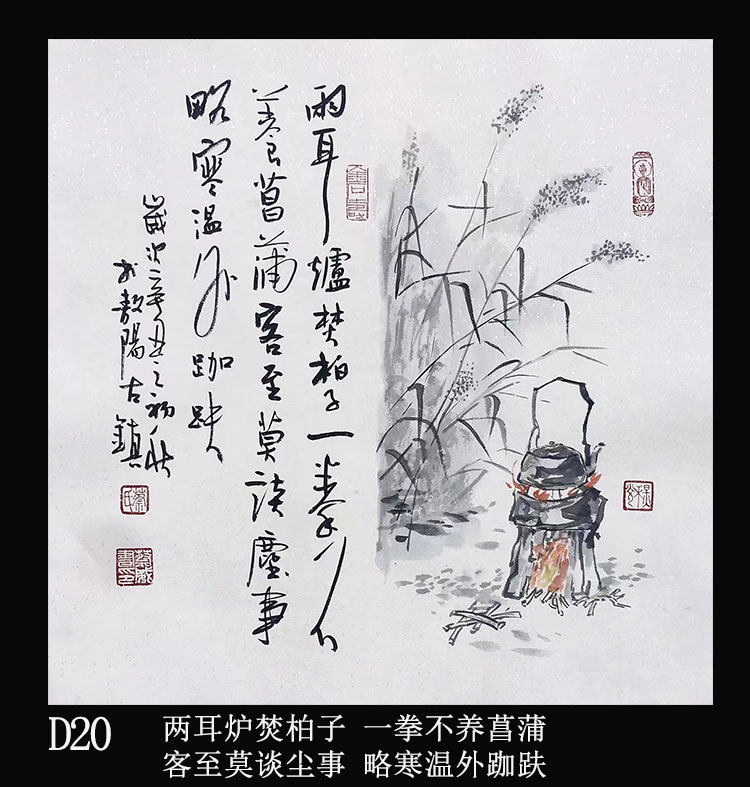 兩耳爐焚柏子一拳
養菖蒲客至莫談塵事
略寒温外跏趺
歲次辛丑之初秋
敖陽古鎮
D20
两耳炉焚柏子 一拳不养菖蒲
客至莫谈尘事 略寒温外跏趺